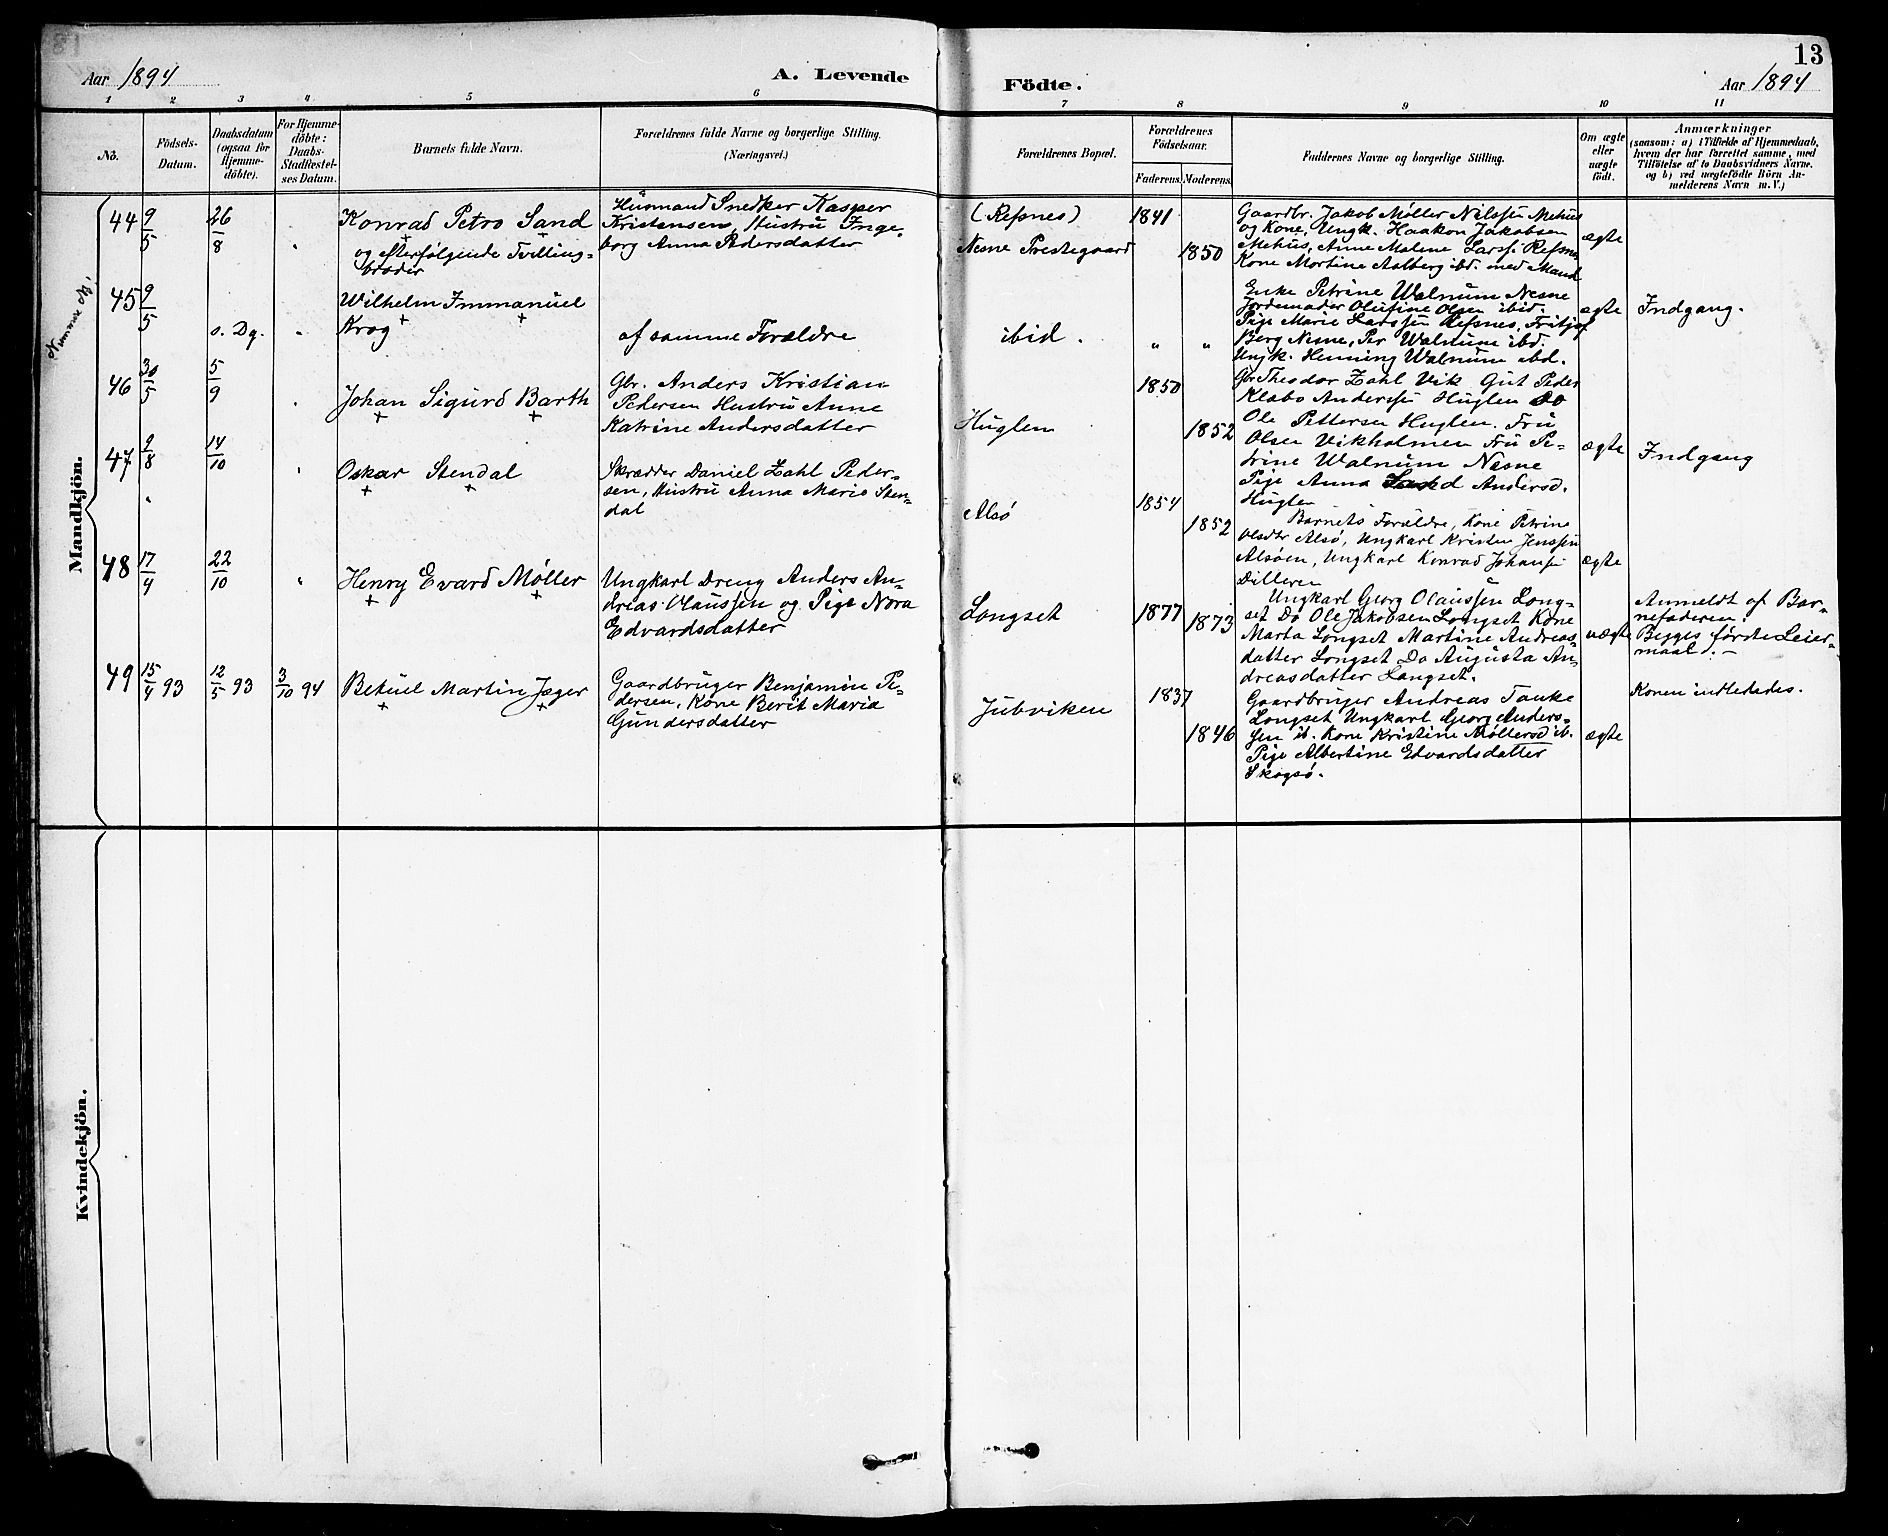 Aar 1894
A. Levende
Födte.
13
Aar 1894
1 2 3 4 5 6 7 8 9 10 11
No.
Födsels-
Datum.
Daabsdatum
(ogsaa for
Hjemme-
döbte).
For Hjemme-
döbte:
Daabs-
Stadfæstel-
ses Datum.
Barnets fulde Navn.
Forældrenes fulde Navne og borgerlige Stilling.
(Næringsvei.)
Forældrenes Bopæl.
Forældrenes
Födselsaar.
Faderens. Moderens.
Faddernes Navne og borgerlige Stilling.
Om ægte
eller
uægte
födt.
Anmærkninger
(saasom: a) i Tilfælde af Hjemmedaab,
hvem der har forrettet samme, med
Tilföielse af to Daabsvidners Navne,
og b) ved uægtefödte Börn An-
melderens Navn m. V.)
Mandkjön.
44 9/5 26/8 "
Konrad Petro Sand
og efterfølgende Tvilling-
broder
Husmand Snedker Kasper
Kristensen, Hustru Inge-
borg Anna Pedersdatter
(Resnes)
Nesne Prestegaard
1841
1850
Gaardbr. Jakob Møller Nilssen Mehus
og Kone, Ungk. Haakon Jakobsen
Mehus, Anne Malene Larss. Resnes
Kone Mortine Aalberg ibd. med Mand
ægte
45 9/5 s. Dg. "
Wilhelm Immanuel
Krog
af samme Forældre
ibid.
" "
Enke Petrine Walnum Nesne
Jordemoder Olufine Olsen ibid.
Pige Marie Larssen Resnes, Fritjof
Berg Nesne, Per Walnum ibd.
Ungk. Henning Walnum ibd.
ægte
Indgang.
46 30/5 5/9 "
Johan Sigurd Barth
Gbr. Anders Kristian
Pedersen Hustru Anne
Katrine Andersdatter
Huglen
1850
1852
Gbr Theodor Zahl Vik Gut Peder
Klæbo Anderssen Huglen
Ole Pettersen Huglen. Fru
Olsen Vikholmen Fru Pe-
trine Walnum Nesne
Pige Anna Andersd.
Huglen
ægte
Indgang
47 9/8 14/10 "
Oskar Stendal
Skrædder Daniel Zahl Peder-
sen, Hustru Anna Marie Sten-
dal
Alsø
1854
1852
Barnets Forældre, Kone Petrine
Olsdtr Alsø, Ungkarl Kristen Jenssen
Alsøen, Ungkarl Konrad Johansen
Dilleren
ægte
48 17/4 22/10 "
Henry Evard Møller
Ungkarl Dreng Anders An-
dreas Olaussen og Pige Nora
Edvardsdatter
Longset
1877
1873
Ungkarl Georg Olaussen Long-
set Do Ole Jakobsen Longset Kone
Marta Longset Martine Andreas-
datter Longset Do Augusta An-
dreasdatter Langset.
uægte
Anmeldt af Bar-
nefaderen.
Begges første Leier-
maal.-
49 15/4 93 12/5 93 3/10 94
Betuel Martin Jæger
Gaardbruger Benjamin Pe-
dersen, Kone Berit Maria
Gundersdatter
Jubviken
1837
1846
Gaardbruger Andreas Tanke
Longset Ungkarl Georg Anders-
sen ib. Kone Kristine Møllersd ib.
Pige Albertine Edvardsdatter
Skogsø.
ægte
Konen indledades.
Kvindekjön.